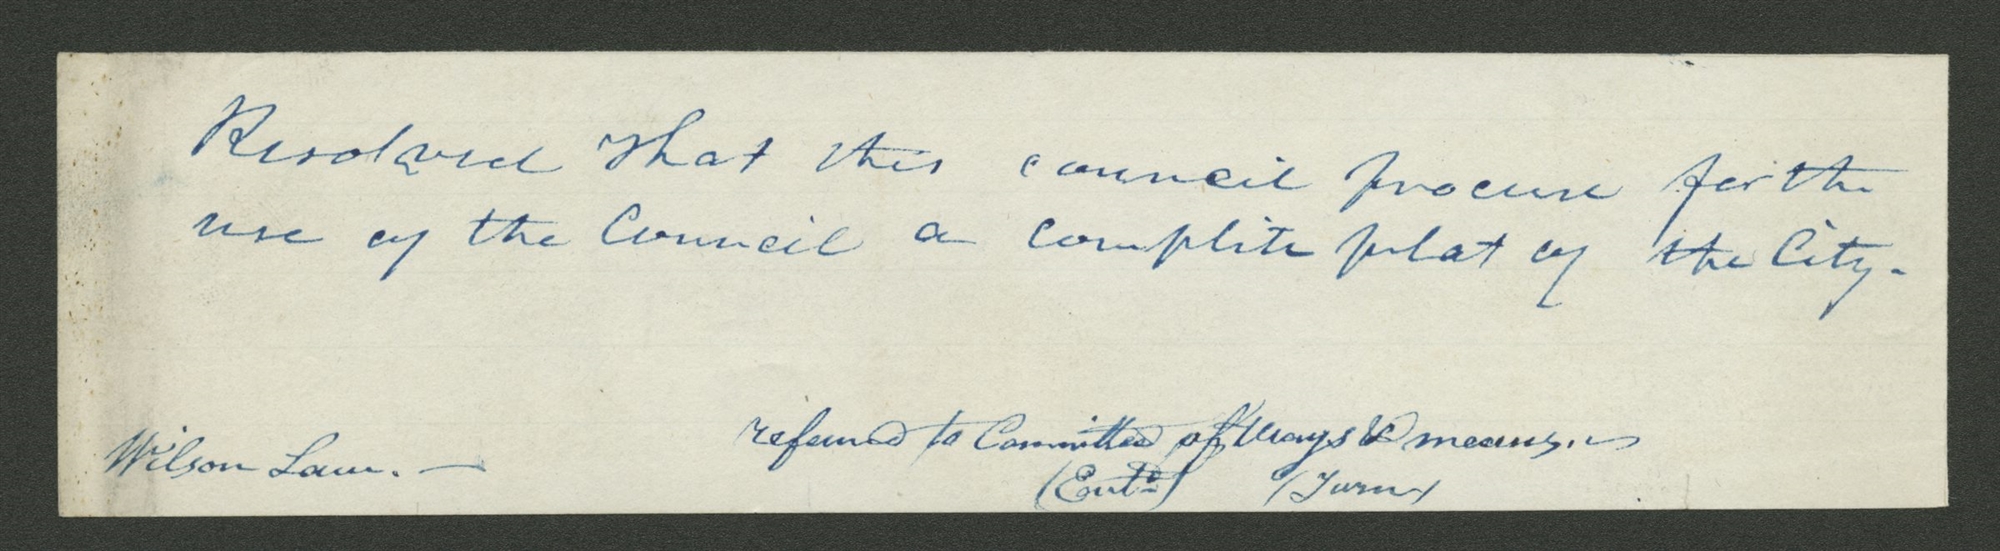 Resolved that this council procure for the
use of the Council a complete plat of the City.
referred to Committee of Ways & means.
Wilson Law. —
(Entd) (Turn)